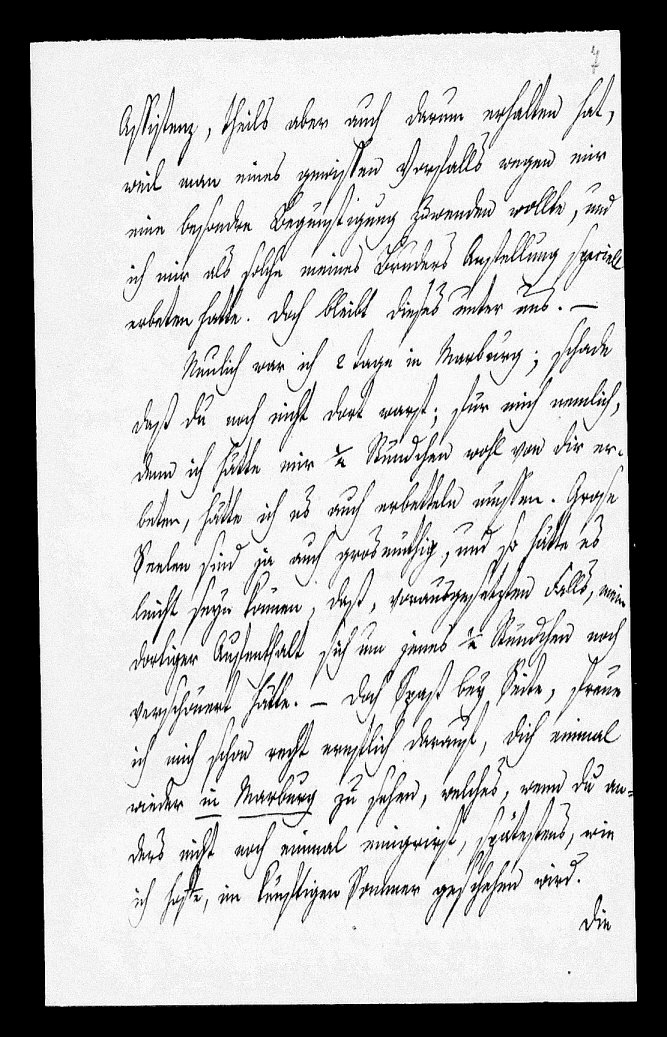 7
Assistenz, theils aber auch darum erhalten hat,
weil man eines gewissen Vorfalls wegen mir
eine besondre Begünstigung zuwenden wollte, und
ich mir als solche meines Bruders Anstellung speciell
erbeten hatte. Doch bleibt dieses unter uns. —
Neulich war ich 2 Tage in Marburg; schade
daß du noch nicht dort warst; für mich nemlich,
denn ich hätte mir ½ Stündchen wohl von dir er-
beten, hätte ich es auch erbetteln müssen. Große
Seelen sind ja auch grosmüthig, und so hätte es
leicht seyn können, daß, vorausgesetzten Falls, mein
dortiger Aufenthalt sich um jenes ½ Stündchen noch
verschönert hätte. — Doch Spaß bey Seite, freue
ich mich schon recht ernstlich darauf, dich einmal
wieder in Marburg zu sehen, welches, wenn du an-
ders nicht noch einmal emigrirst, spätestens, wie
ich hoffe, im künftigen Sommer geschehen wird.
Die